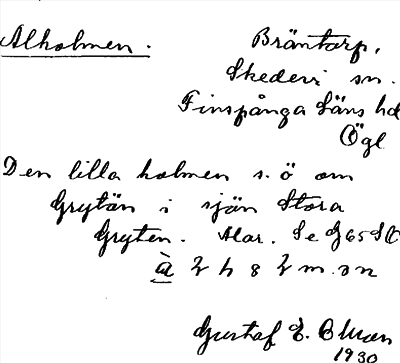 Alholmen. Bräntorp,
Skedevi sn.
Finspånga Läns hd
Ögl.
Den lilla holmen s. ö om
Grytön i sjön Stora
Gryten. Alar. Se G 65 SO
m. sn
Gustaf E.
1930